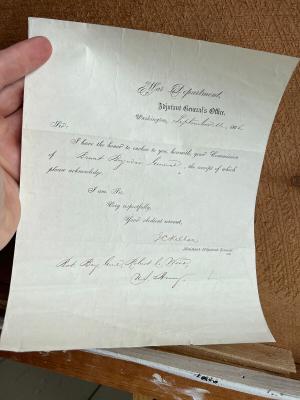 War Department,
Adjutant General's Office,
Washington, September 11, 186
Sir:
I have the honor to enclose to you, herewith, your Commission
of Brevet Brigadier General, the receipt of which
please acknowledge.
I am Sir,
Very respectfully,
Your obedient servant,
J C Kelton
Assistant Adjutant General.
Bvt. Brig. Genl. Robert C. Wood,
U.S. Army.